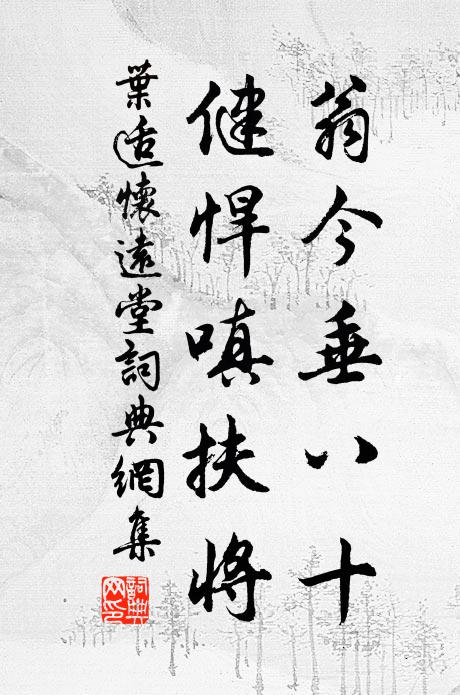 翁今垂八十
健悍嗔扶将
葉适懷遠堂詞典網集
詞典網印